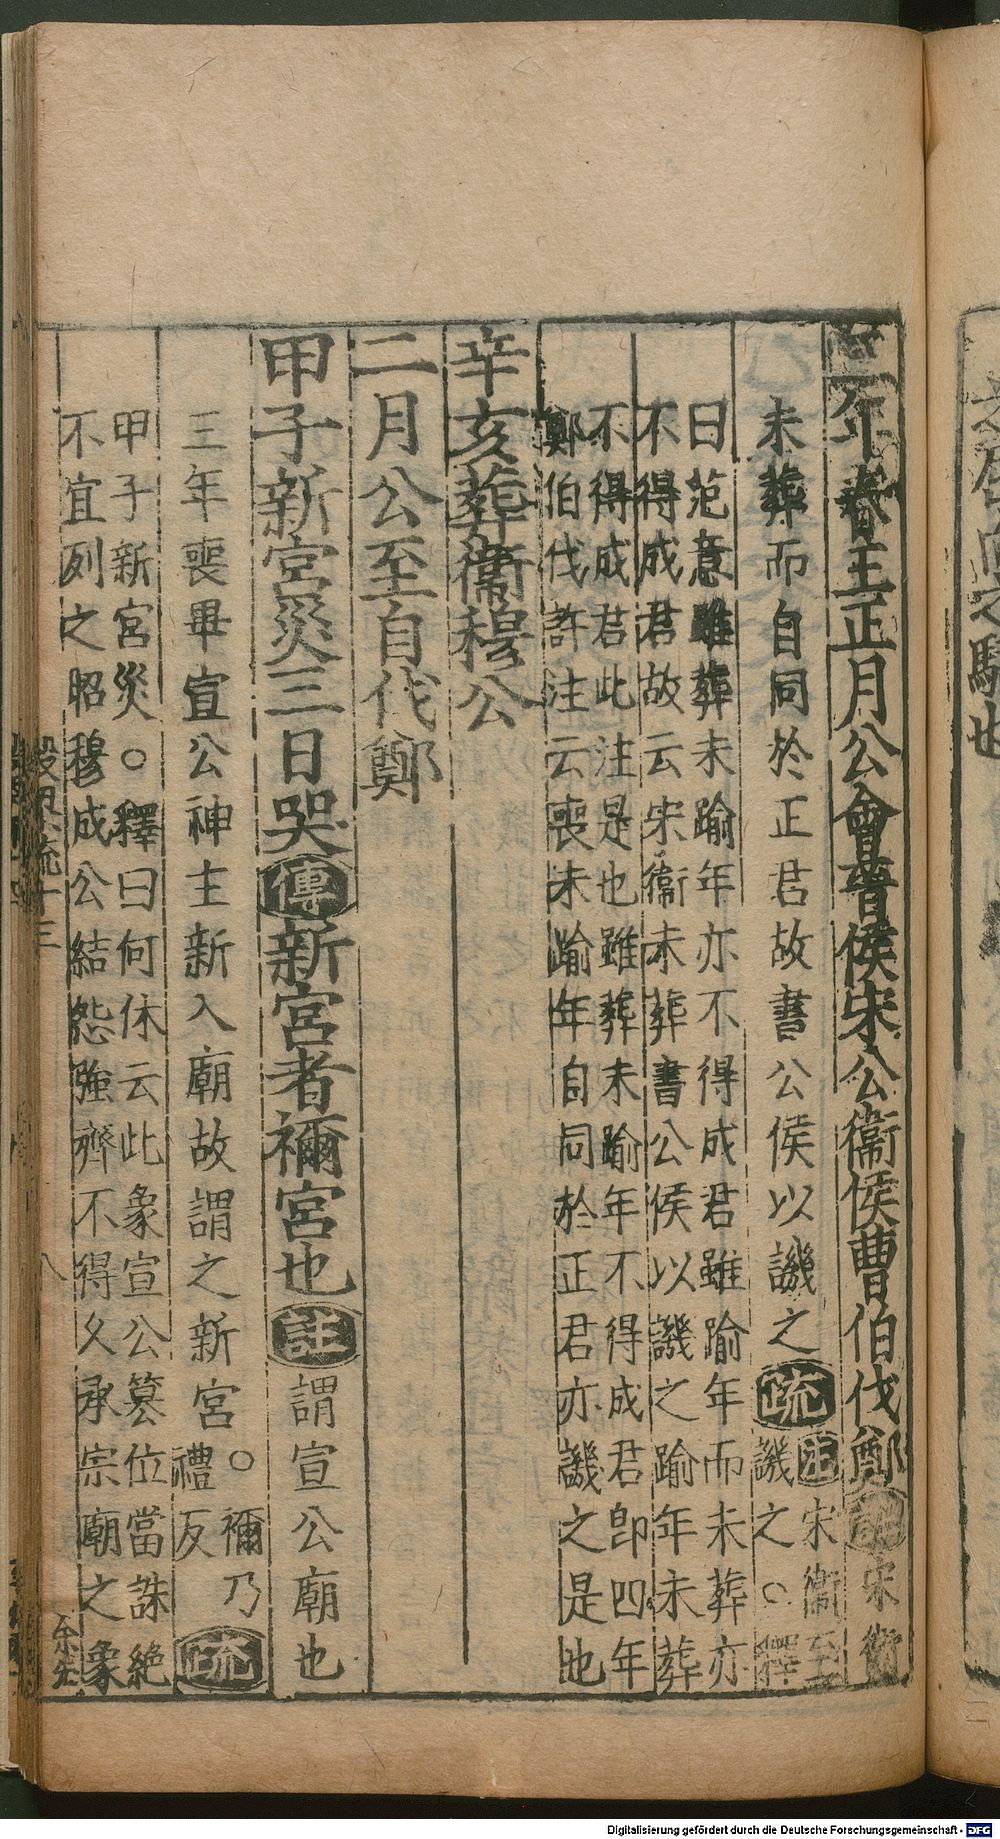 三年春王正月公會晉侯宋公衞侯曹伯伐鄭註宋衞
未葬而自同於正君故書公侯以譏之疏註宋衞至
譏之○釋
曰范意雖葬未踰年亦不得成君雖踰年而未葬亦
不得成君故云宋衞未葬書公侯以譏之踰年未葬
不得成君此注是也雖葬未踰年不得成君卽四年
鄭伯伐許注云喪未踰年自同於正君亦譏之是也
辛亥葬衞穆公
二月公至自伐鄭
甲子新宮災三日哭傳新宮者禰宮也註謂宣公廟也
三年喪畢宣公神主新入廟故謂之新宮○禰乃
禮反疏
甲子新宮災○釋曰何休云此象宣公篡位當誅絶
不宜列之昭穆成公結怨強齊不得久承宗廟之象
穀梁疏十三
八
余先
Digitalisierung gefördert durch die Deutsche Forschungsgemeinschaft - DFG